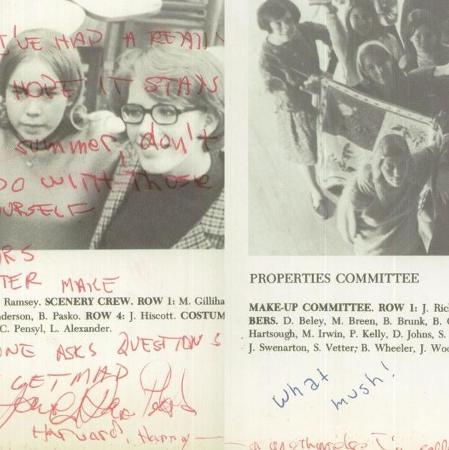 I'VE HAD A REALLY
HOPE IT STAYS
summer, don't
DO WITH THOSE
YOURSELF
MAKE
Ramsey. SCENERY CREW. ROW 1: M. Gilliha
nderson, B. Pasko. ROW 4: J. Hiscott. COSTUM
C. Pensyl, L. Alexander.
ONE ASKS QUESTIONS
GET MAD
Harvard,
PROPERTIES COMMITTEE
MAKE-UP COMMITTEE. ROW 1: J. Ric
BERS. D. Beley, M. Breen, B. Brunk, B. C
Hartsough, M. Irwin, P. Kelly, D. Johns, S.
J. Swenarton, S. Vetter; B. Wheeler, J. Woo
what
mush!